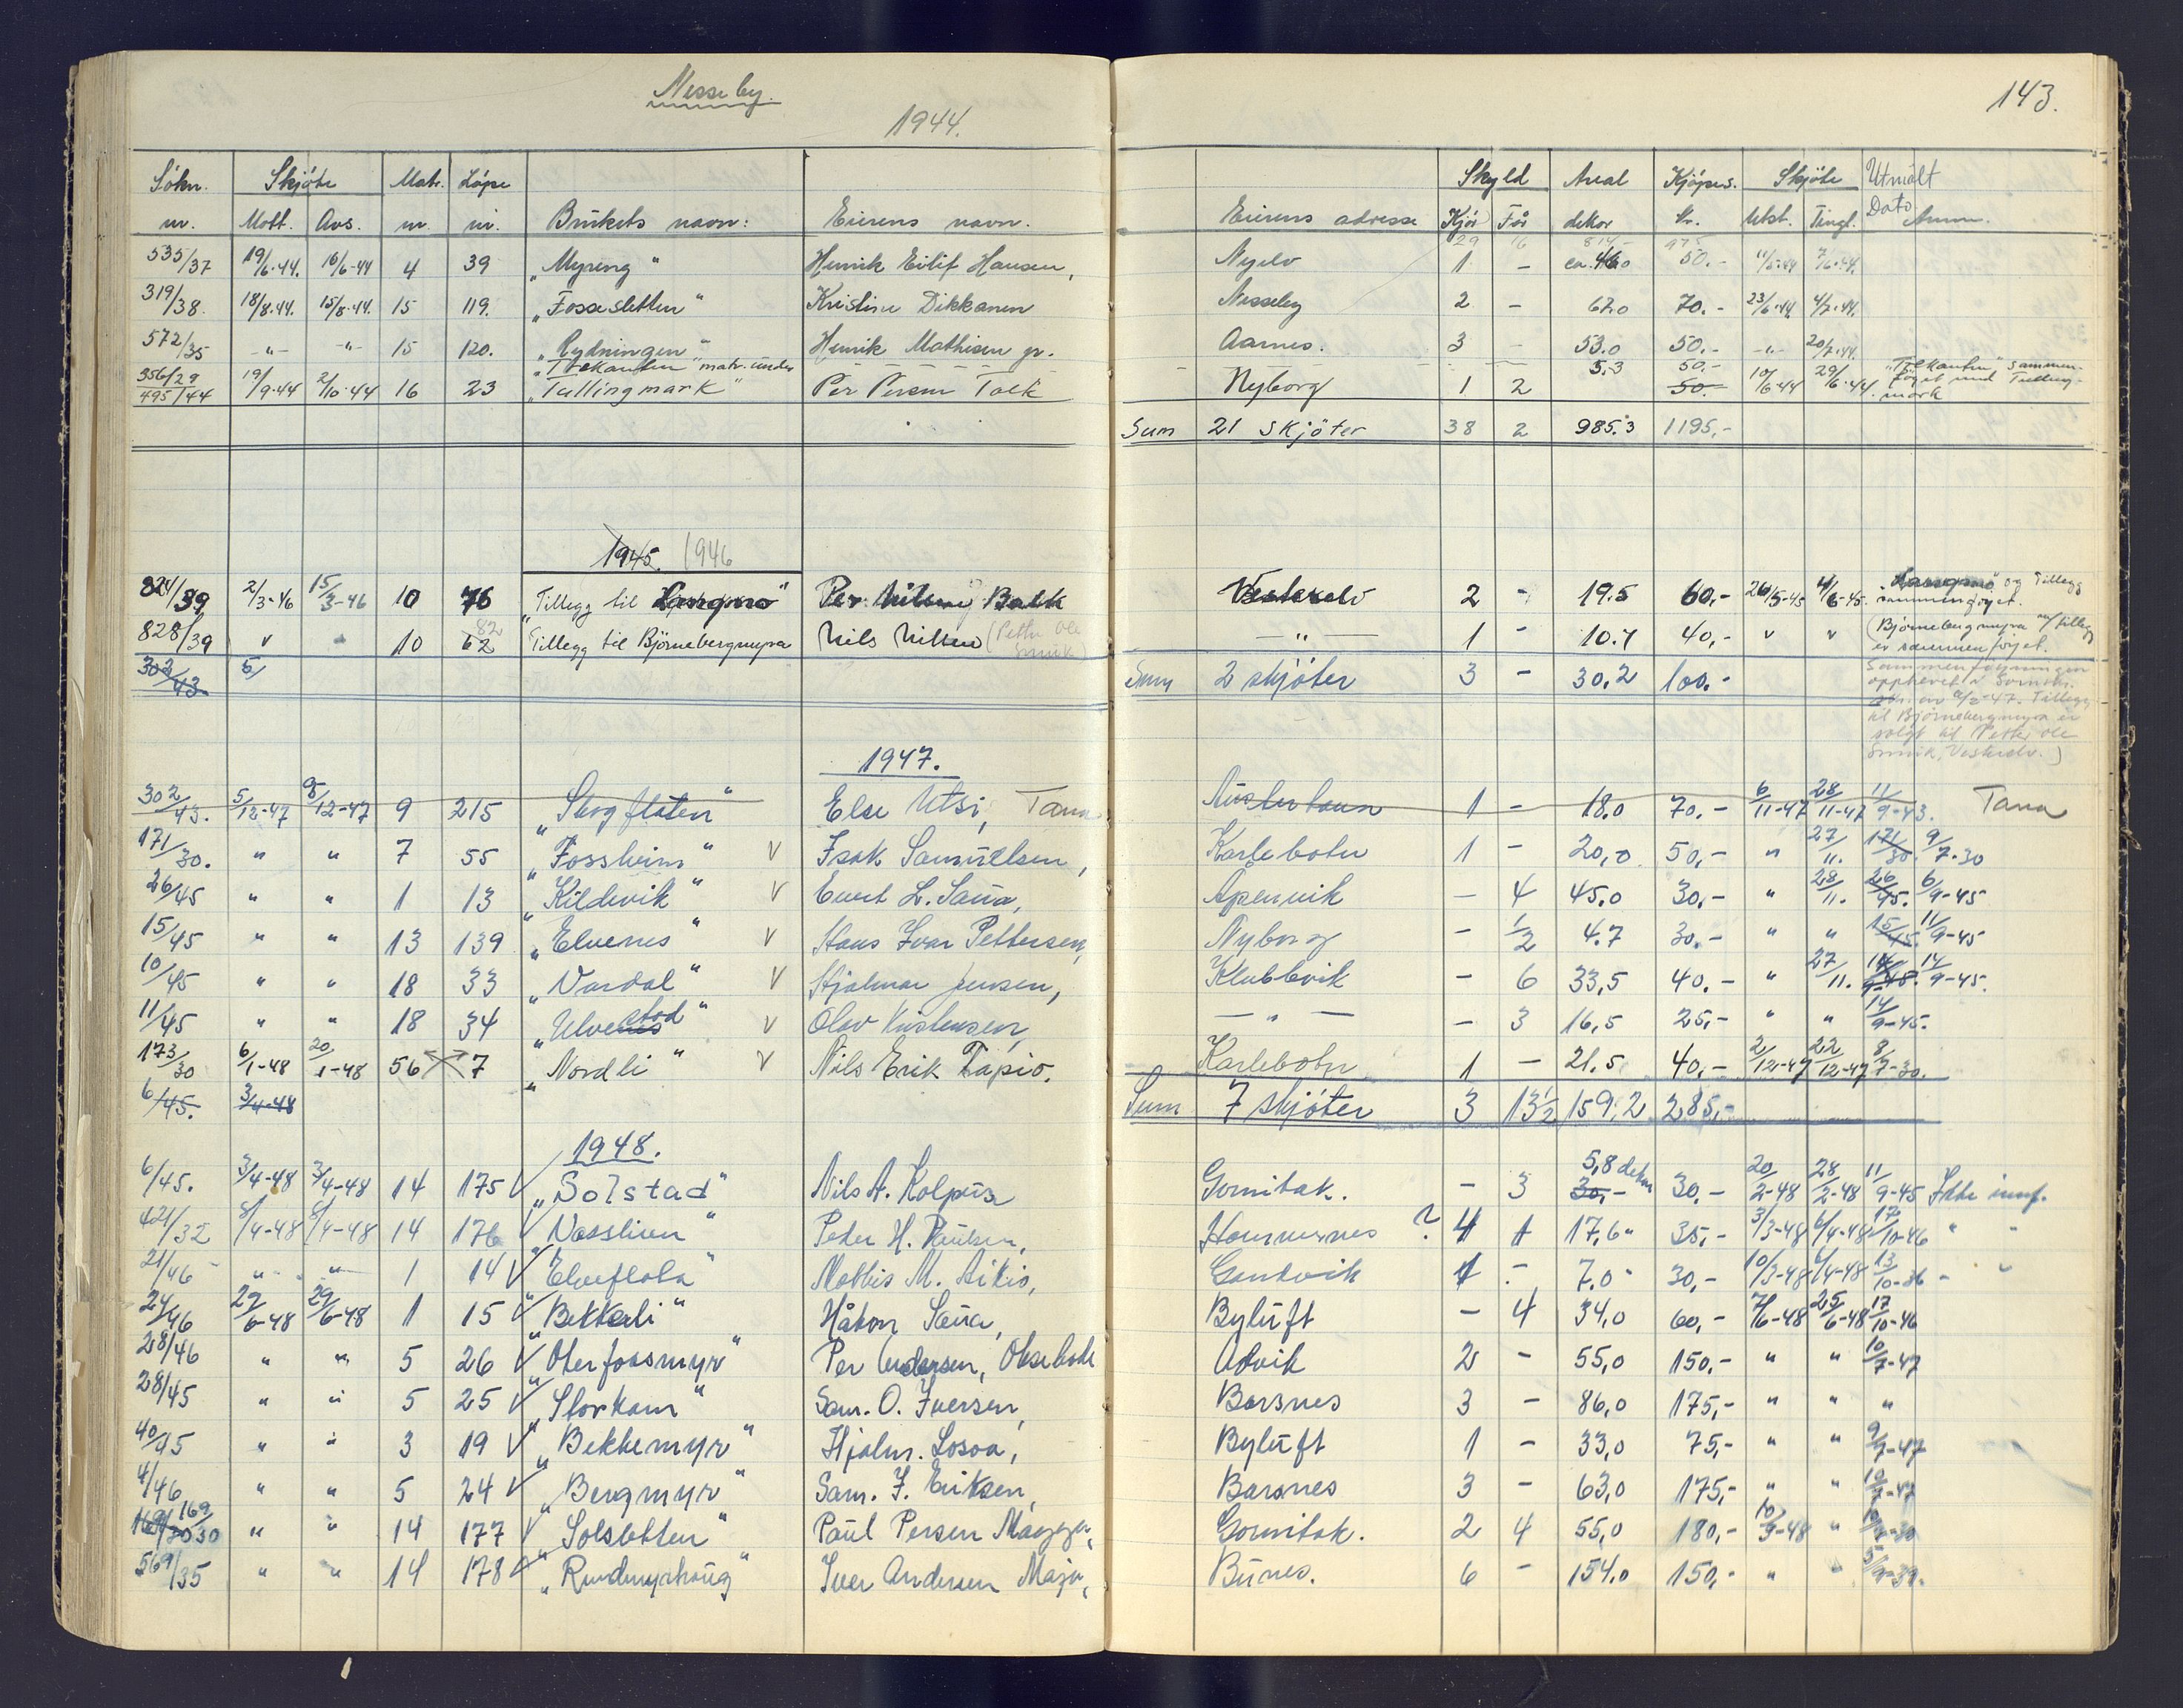 Nesseby.
1944.
143.
Søkn. nr. | Skjøte Mott. Avs. | Matr. nr. | Løpe nr. | Brukets navn: | Eierens navn. | Eierens adresse | Skyld Kjør Før | Areal dekar | Kjøpes. kr. | Skjøte Utst. Tingl. | Utmålt Dato | Anm.
29 16 814- 975
535/37 19/6.44. 16/6-44 4 39 „Myreng" Henrik Eilif Hansen, Nyelv 1 - ca. 46.0 50.- 11/5-44 7/6.44.
319/38 18/8.44. 15/8.44. 15 119. „Fossesletten" Kristine Dikkanen Nesseby 2 - 62.0 70.- 23/6.44. 4/7.44.
572/35 -"- -"- 15 120. „Rydningen" Henrik Mathisen jr. Aarnes. 3 - 53.0 50.- -"- 20/7.44.
„Trekanten" matr. under 5.3 50.- „Trekanten" sammen-
356/29 495/44 19/9.44 2/10.44 16 23 „Tullingmark" Per Persen Tolk Nyborg 1 2 50.- 10/6.44 29/6.44. føyet med Tulling-
mark
Sum 21 skjöter 38 2 985.3 1195,-
1945. 1946
824/39 2/3-46 15/3-46 10 76 „Tillegg til Langmo" Per Nilsen Balk Vesterelv 2 - 19.5 60,- 26/5-45 4/6-45. Langmo og Tillegg
sammenføyet.
828/39 v 10 62 82 Tillegg til Björnebergmyra Nils Nilsen (Petter Ole -"- 1 - 10.7 40,- v v (Björnebergmyra m/ tillegg
er sammenføyet.
302/43 5/ Sum 2 skjöter 3 - 30,2 100.- Sammenføyningen
opphevet
-47. Tillegg
til Björnebergmyra er
solgt til Petter Ole
Vesterelv.)
1947.
302/43. 5/12-47 8/12-47 9 215 „Skogflaten" Else Utsi, Tana Austertana 1 - 18.0 70.- 6/11-47 28/11-47 11/9-43. Tana
171/30. " " 7 55 „Fossheim" V Isak Samuelsen, Karlebotn 1 - 20,0 50,- " 27/11. 171/30. 9/7-30
26/45 " " 1 13 „Kildevik" V Evert L. Saua, Apenvik - 4 45.0 30,- " 28/11. 26/45. 6/9-45
15/45 " " 13 139 „Elvenes" V Hans Ivar Pettersen, Nyborg - 1/2 4.7 30.- " " 15/45. 11/9-45
10/45 " " 18 33 „Vardal" V Hjalmar Jensen, Klubbvik - 6 33,5 40.- " 27/11. 14/9-45.
11/45 " " 18 34 „Elvenes stad" V Olav Kristensen, -"- - 3 16,5 25,- " " 14/9-45.
173/30 6/1-48 20/1-48 56 7 „Nordli" V Nils Erik Tapio. Karlebotn 1 - 21.5 40,- 2/12-47 22/12-47 8/7-30.
6/45. 3/4-48 Sum 7 skjöter 3 13 1/2 159,2 285,-
1948.
6/45. 3/4-48 3/4-48 14 175 V „Solstad" Nils A. Kolpus Gornitak. - 3 5,8 dekar 30,- 30.- 20/2-48 28/2-48 11/9-45 Ikke innf.
421/32 8/4-48 8/4-48 14 176 V „Nesslien" Peder H. Paulsen, Hammernes ? 4 1 17,6 35,- 3/3-48 6/4-48 17/10-46 " "
21/46 " " 1 14 V „Elveflata" Mathis M. Aikio, Gandvik 1 - 7.0 30,- 10/3-48 6/4-48 13/10-36 - "
24/46 29/6-48 29/6-48 1 15 V „Bekkeli" Håkon Saua, Byluft - 4 34,0 60,- 7/6-48 25/6-48 17/10-46
28/46 " " 5 26 V „Oterfossmyr" Per Andersen, Advik 2 - 55,0 150.- " " 10/7-47
28/45 " " 5 25 V „Storkam" Sam. O. Iversen, Barsnes 3 - 86,0 175,- " " "
40/45 " " 3 19 V „Bekkemyr" Hjalm. Losoa, Byluft 1 - 33,0 75,- " " 9/7-47
4/46 " " 5 24 V „Bergmyr" Sam. J. Eriksen, Barsnes 3 - 63,0 175,- " " 10/7-47
169/30 169/30 " " 14 177 V „Solsletten" Paul Persen Magga, Gornitak. 2 4 55,0 180,- 10/9-48 "
569/35 " " 14 178 V „Rundmyrhaug" Iver Andersen Maja, Bunes. 6 - 154.0 150,- " " 5/9-39.